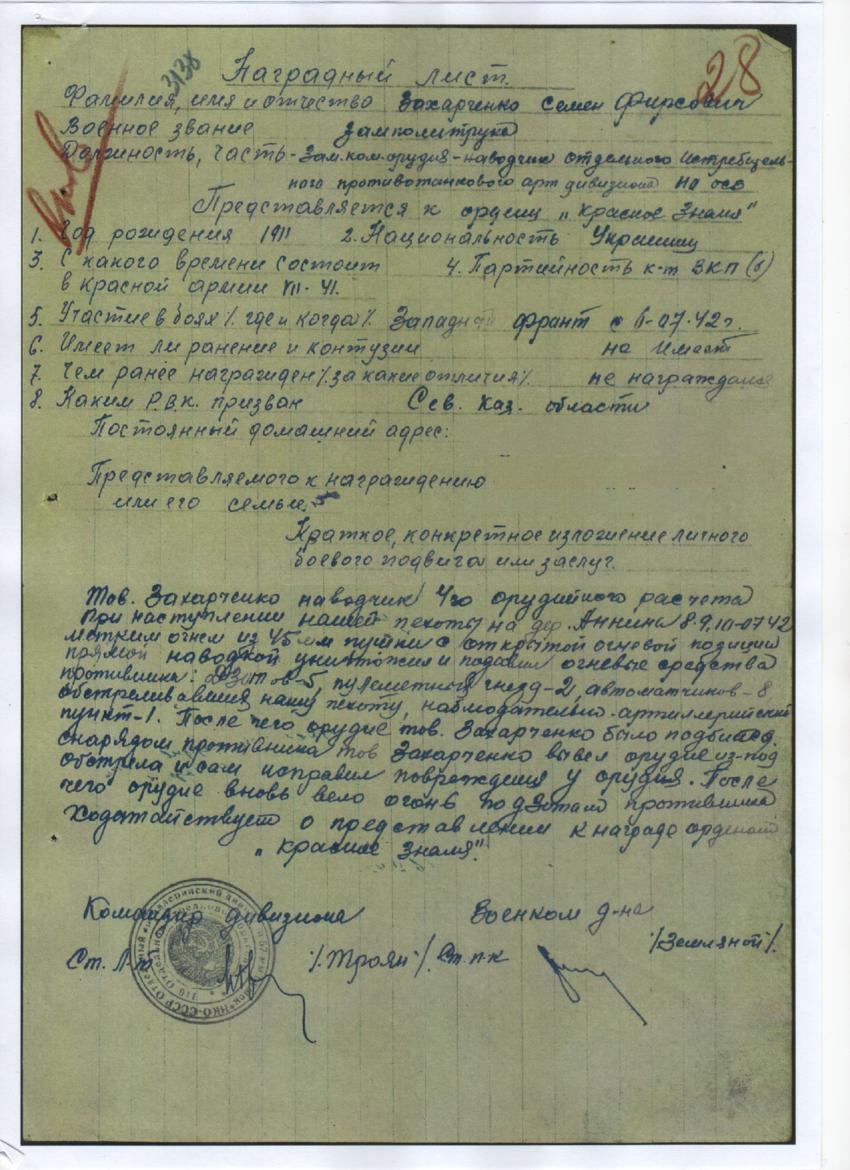 3138
28
Наградный лист.
Фамилия, имя и отчество Захарченко Семен Фирсович
Военное звание замполитрука
Должность, часть - Зам.ком.орудия - наводчик отдельного истребитель-
ного противотанкового арт дивизиона 110 осб
Представляется к ордену "Красное Знамя"
1. Год рождения 1911 2. Национальность Украинец
3. С какого времени состоит 4. Партийность к-т ВКП(б)
в красной армии VII-41.
5. Участие в боях /. где и когда /. Западный фронт с 6-07-42 г.
6. Имеет ли ранение и контузии не имеет
7. Чем ранее награжден /. за какие отличия /. не награждался
8. Каким Р.В.К. призван Сев. Каз. области
Постоянный домашний адрес:
Представляемого к награждению
или его семьи.
Краткое, конкретное изложение личного
боевого подвига или заслуг.
Тов. Захарченко наводчик 4го орудийного расчета
При наступлении нашей пехоты на дер. Аннина 8.9.10-07 42
метким огнем из 45 мм пушки с открытой огневой позиции
прямой наводкой уничтожил и подавил огневые средства
противника: дзотов-5, пулеметных гнезд-2, автоматчиков-8,
обстреливавших нашу пехоту, наблюдательно-артиллерийский
пункт-1. После чего орудие тов. Захарченко было подбито
снарядом противника тов Захарченко вывел орудие из-под
обстрела и сам исправил повреждения у орудия. После
чего орудие вновь вело огонь по дзотам противника
Ходатайствует о представлении к награде орденом
"красное Знамя".
Командир дивизиона Военком д-на
Ст. Л-т /.Троян/. Ст. п-к /Земляной/.
НКО-СССР